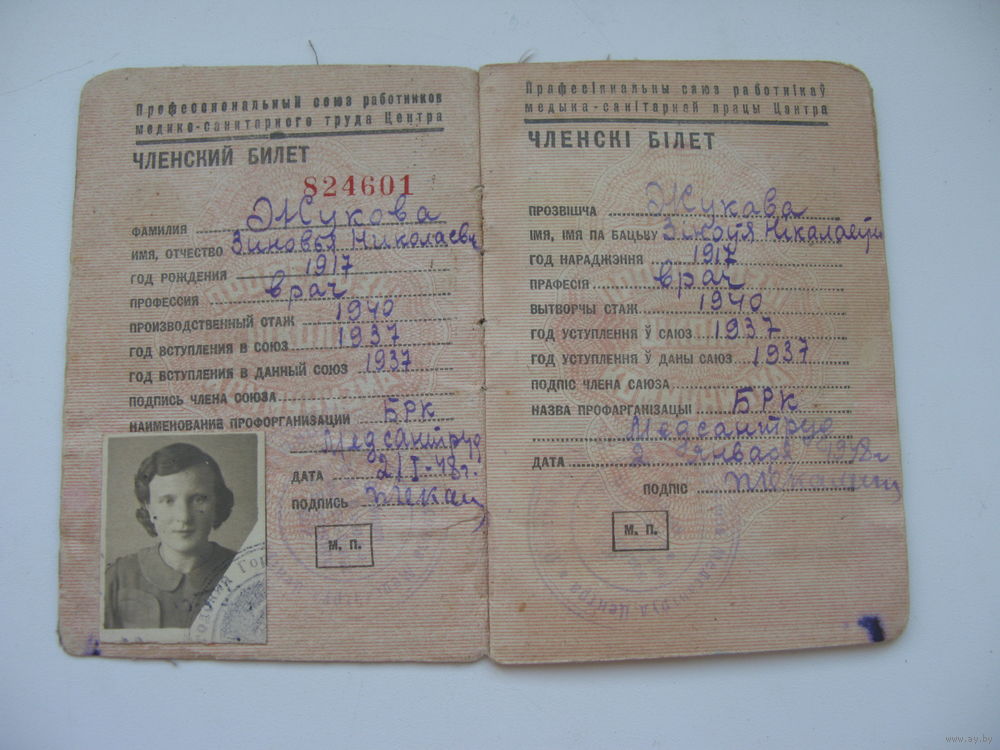 Профессиональный союз работников
медико-санитарного труда Центра
ЧЛЕНСКИЙ БИЛЕТ
824601
ФАМИЛИЯ Жукова
ИМЯ, ОТЧЕСТВО Зиновья Николаевн
ГОД РОЖДЕНИЯ 1917
ПРОФЕССИЯ врач
ПРОИЗВОДСТВЕННЫЙ СТАЖ 1940
ГОД ВСТУПЛЕНИЯ В СОЮЗ 1937
ГОД ВСТУПЛЕНИЯ В ДАННЫЙ СОЮЗ 1937
ПОДПИСЬ ЧЛЕНА СОЮЗА
НАИМЕНОВАНИЕ ПРОФОРГАНИЗАЦИИ БРК
Медсантруд
ДАТА 2/I-48г.
ПОДПИСЬ
М. П.
Професіянальны саюз работнікаў
медыка-санітарнай працы Центра
ЧЛЕНСКІ БІЛЕТ
ПРОЗВІШЧА Жукава
ІМЯ, ІМЯ ПА БАЦЬКУ
ГОД НАРАДЖЭННЯ 1917
ПРАФЕСІЯ врач
ВЫТВОРЧЫ СТАЖ 1940
ГОД УСТУПЛЕННЯ Ў САЮЗ 1937
ГОД УСТУПЛЕННЯ Ў ДАНЫ САЮЗ 1937
ПОДПІС ЧЛЕНА САЮЗА
НАЗВА ПРАФАРГАНІЗАЦЫІ БРК
Медсантруд
ДАТА 2 января 1948г
ПОДПІС
М. П.
www.ay.by